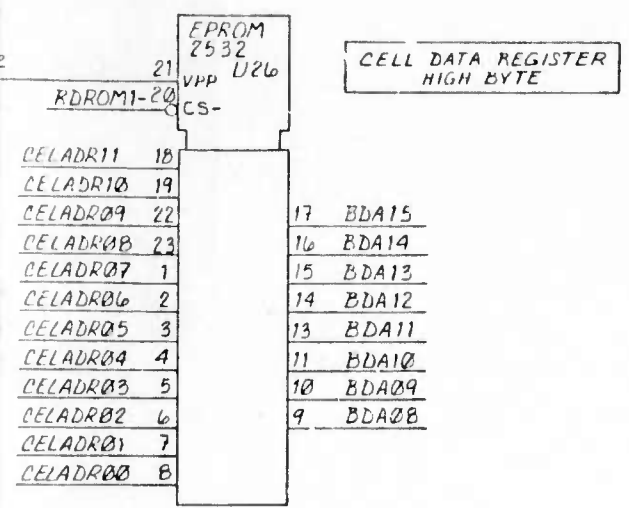 EPROM
2532
U26
2
21 VPP
RDROM1- 20 CS-
CELL DATA REGISTER
HIGH BYTE
CELADR11 18
CELADR10 19
CELADR09 22
CELADR08 23
CELADR07 1
CELADR06 2
CELADR05 3
CELADR04 4
CELADR03 5
CELADR02 6
CELADR01 7
CELADR00 8
17 BDA15
16 BDA14
15 BDA13
14 BDA12
13 BDA11
11 BDA10
10 BDA09
9 BDA08